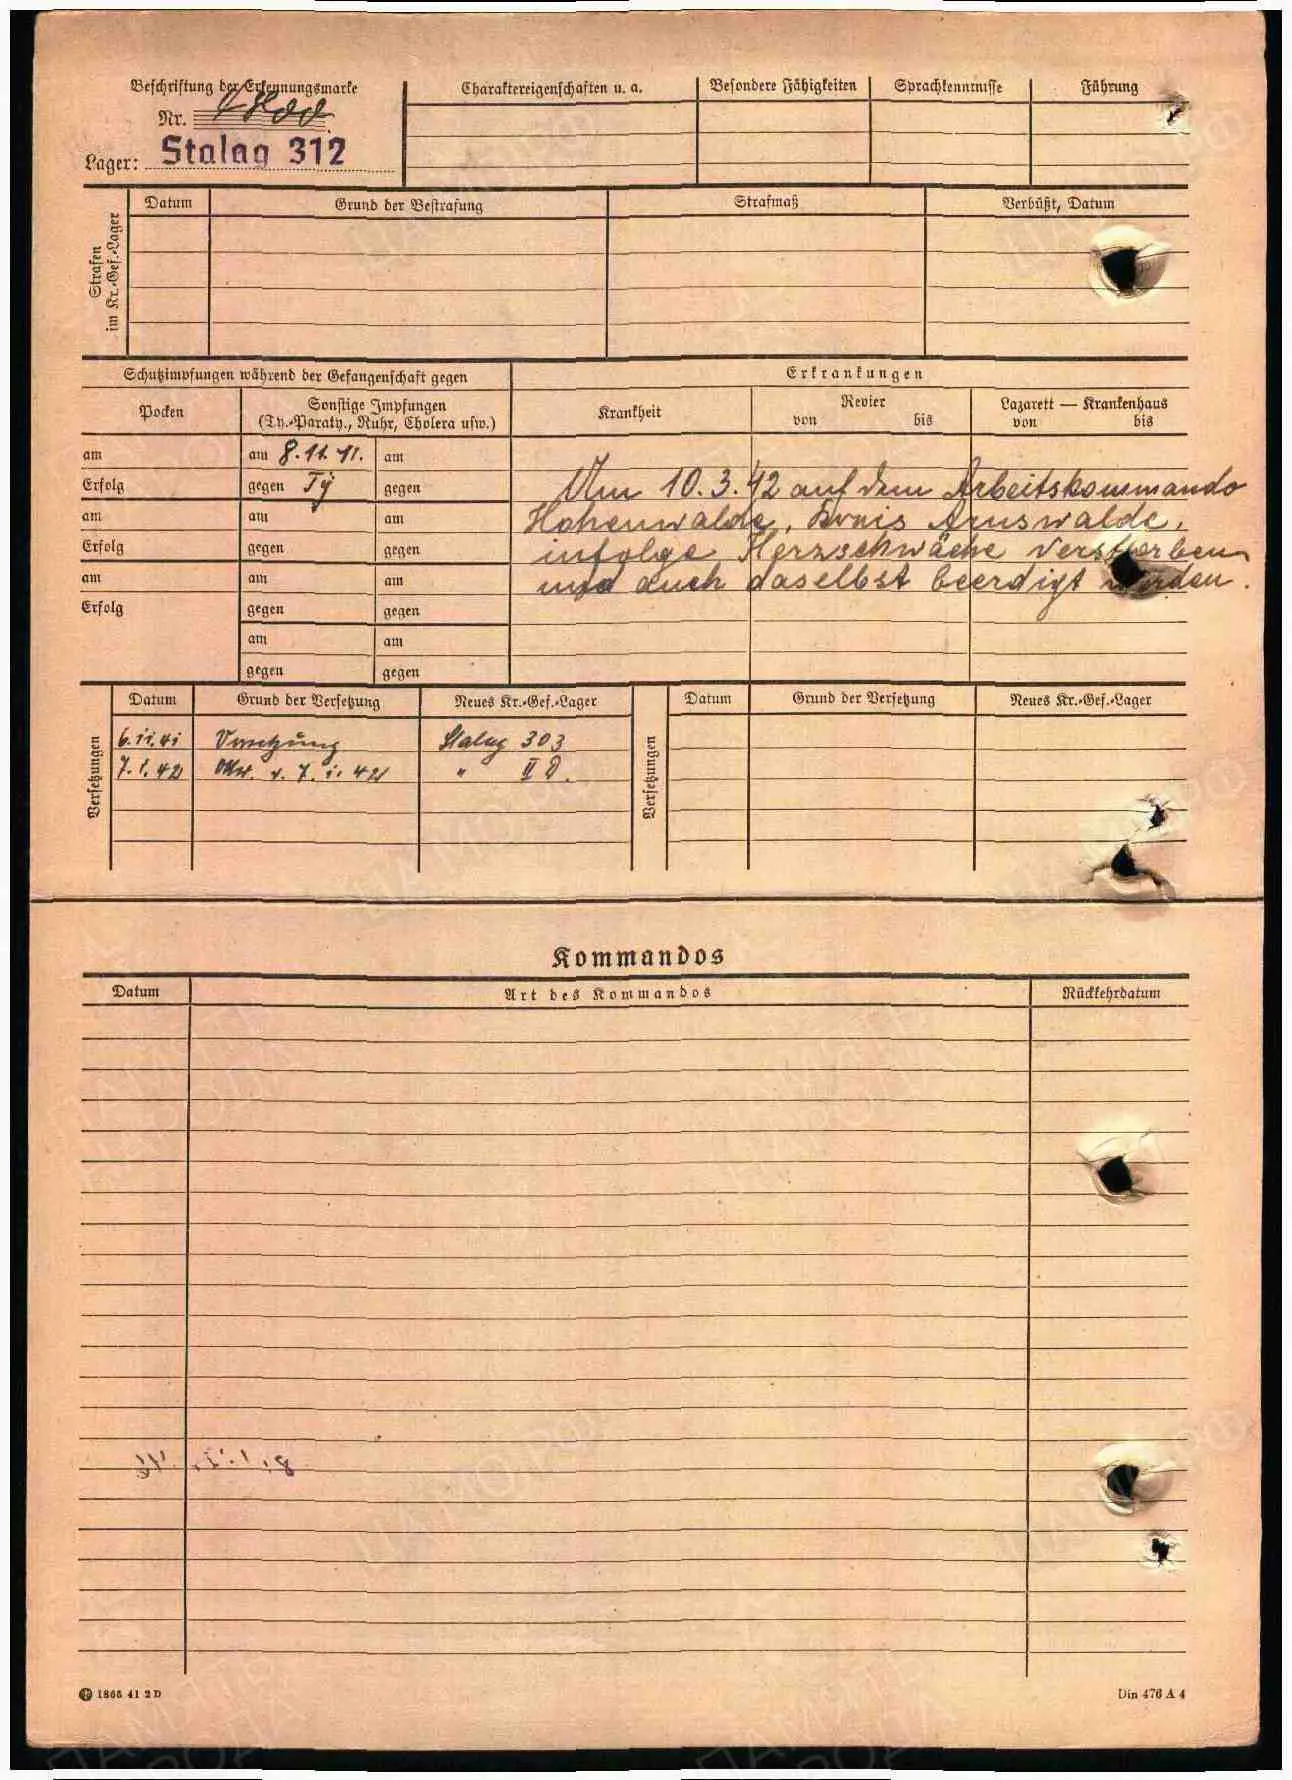 Beschriftung der Erkennungsmarke
Nr.
Lager: Stalag 312
Charaktereigenschaften u. a.
Besondere Fähigkeiten
Sprachkenntnisse
Führung
Strafen im Kr.-Gef.-Lager
Datum
Grund der Bestrafung
Strafmaß
Verbüßt, Datum
Schutzimpfungen während der Gefangenschaft gegen
Erkrankungen
Pocken
Sonstige Impfungen
(Ty.-Paraty., Ruhr, Cholera usw.)
Krankheit
Revier
von bis
Lazarett — Krankenhaus
von bis
am am 8.11.41. am
Erfolg gegen Ty gegen
am am am
Erfolg gegen gegen
am am am
Erfolg gegen gegen
am am
gegen gegen
Am 10.3.42 auf dem Arbeitskommando
Hohenwalde, Kreis Arnswalde,
infolge Herzschwäche verstorben
und auch daselbst beerdigt worden.
Versetzungen
Datum Grund der Versetzung Neues Kr.-Gef.-Lager
6.11.41 Versetzung Stalag 303
7.1.42 v. 7. 1. 42 " II D.
Versetzungen
Datum Grund der Versetzung Neues Kr.-Gef.-Lager
Kommandos
Datum Art des Kommandos Rückkehrdatum
1866 41 2 D
Din 476 A 4